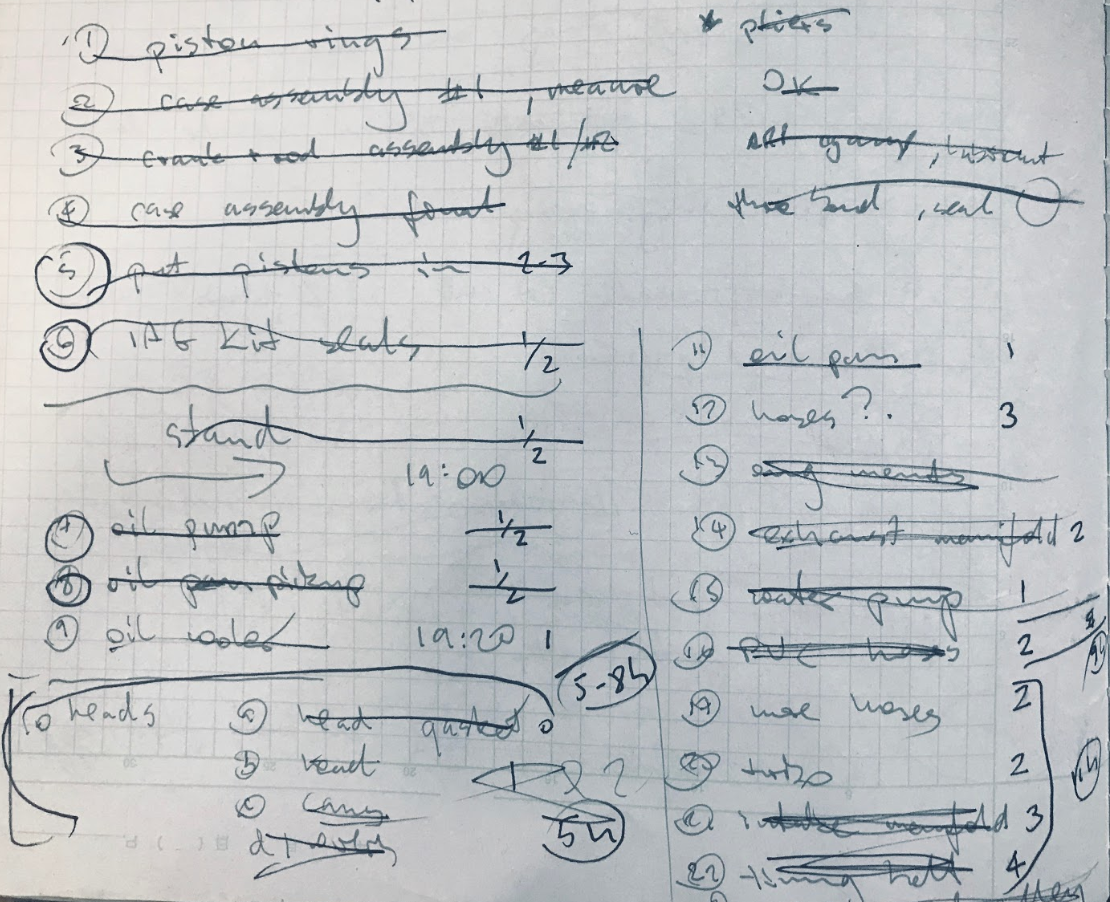 ① piston rings
② case assembly #1, measure
③ crank + rod assembly #1/#2
④ case assembly
⑤ put pistons in 2-3
⑥ IAG Kit seals 1/2
stand 1/2
19:00
oil pump 1/2
⑧ oil pan pickup 1/2
⑨ oil cooler 19:20 1
5-8h
heads ⓐ head gasket
ⓑ
ⓒ cams
d)
5h
* pliers
OK
, lubricant
, seal
⑪ oil pan 1
⑫ hoses ?. 3
⑬ eng
⑭ exhaust manifold 2
⑮ water pump 1
hoses 2
more hoses 2
turbo 2
intake manifold 3
㉒ timing belt 4